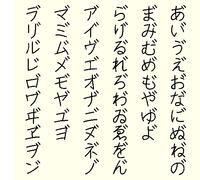 あ゙い゙ゔえ゙お゙な゙に゙ぬ゙ね゙の゙
ま゙み゙む゙め゙も゙や゙ゆ゙よ゙
ら゙り゙る゙れ゙ろ゙わ゙ゐ゙ゑ゙を゙ん゙
ア゙イ゙ヴエ゙オ゙ナ゙ニ゙ヌ゙ネ゙ノ゙
マ゙ミ゙ム゙メ゙モ゙ヤ゙ユ゙ヨ゙
ラ゙リ゙ル゙レ゙ロ゙ヷヸヹヺン゙